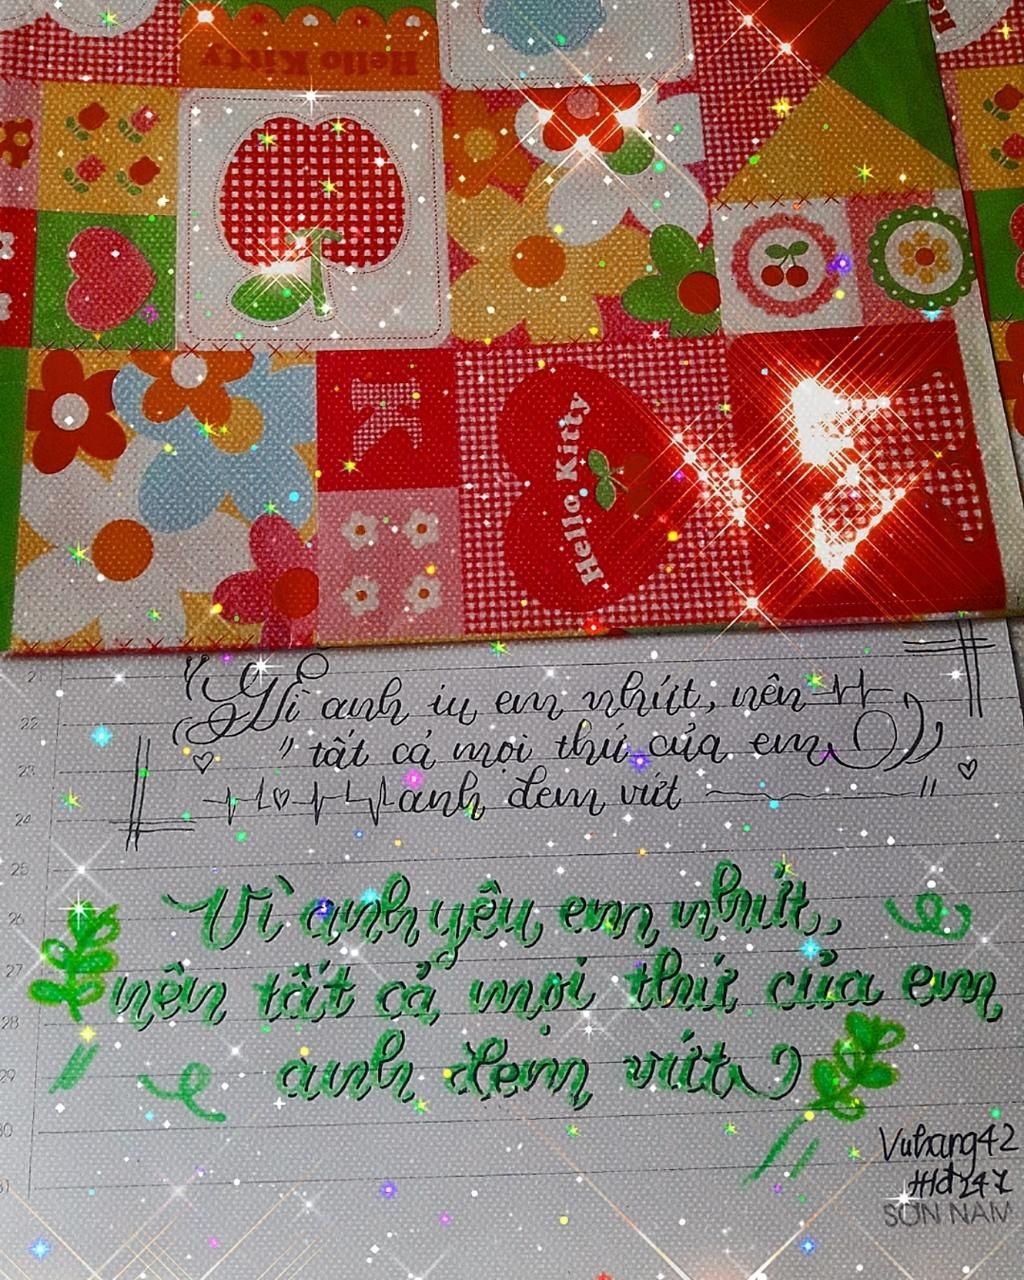 Hello Kitty
K
Hello Kitty
21
"Vì anh iu em nhứt, nên
22
"tất cả mọi thứ của em
23
anh đem vứt "
24
25
Vì anh yêu em nhứt,
26
nên tất cả mọi thứ của em
27
28
anh đem vứt
29
30
31
Vuhang42
SƠN NAM